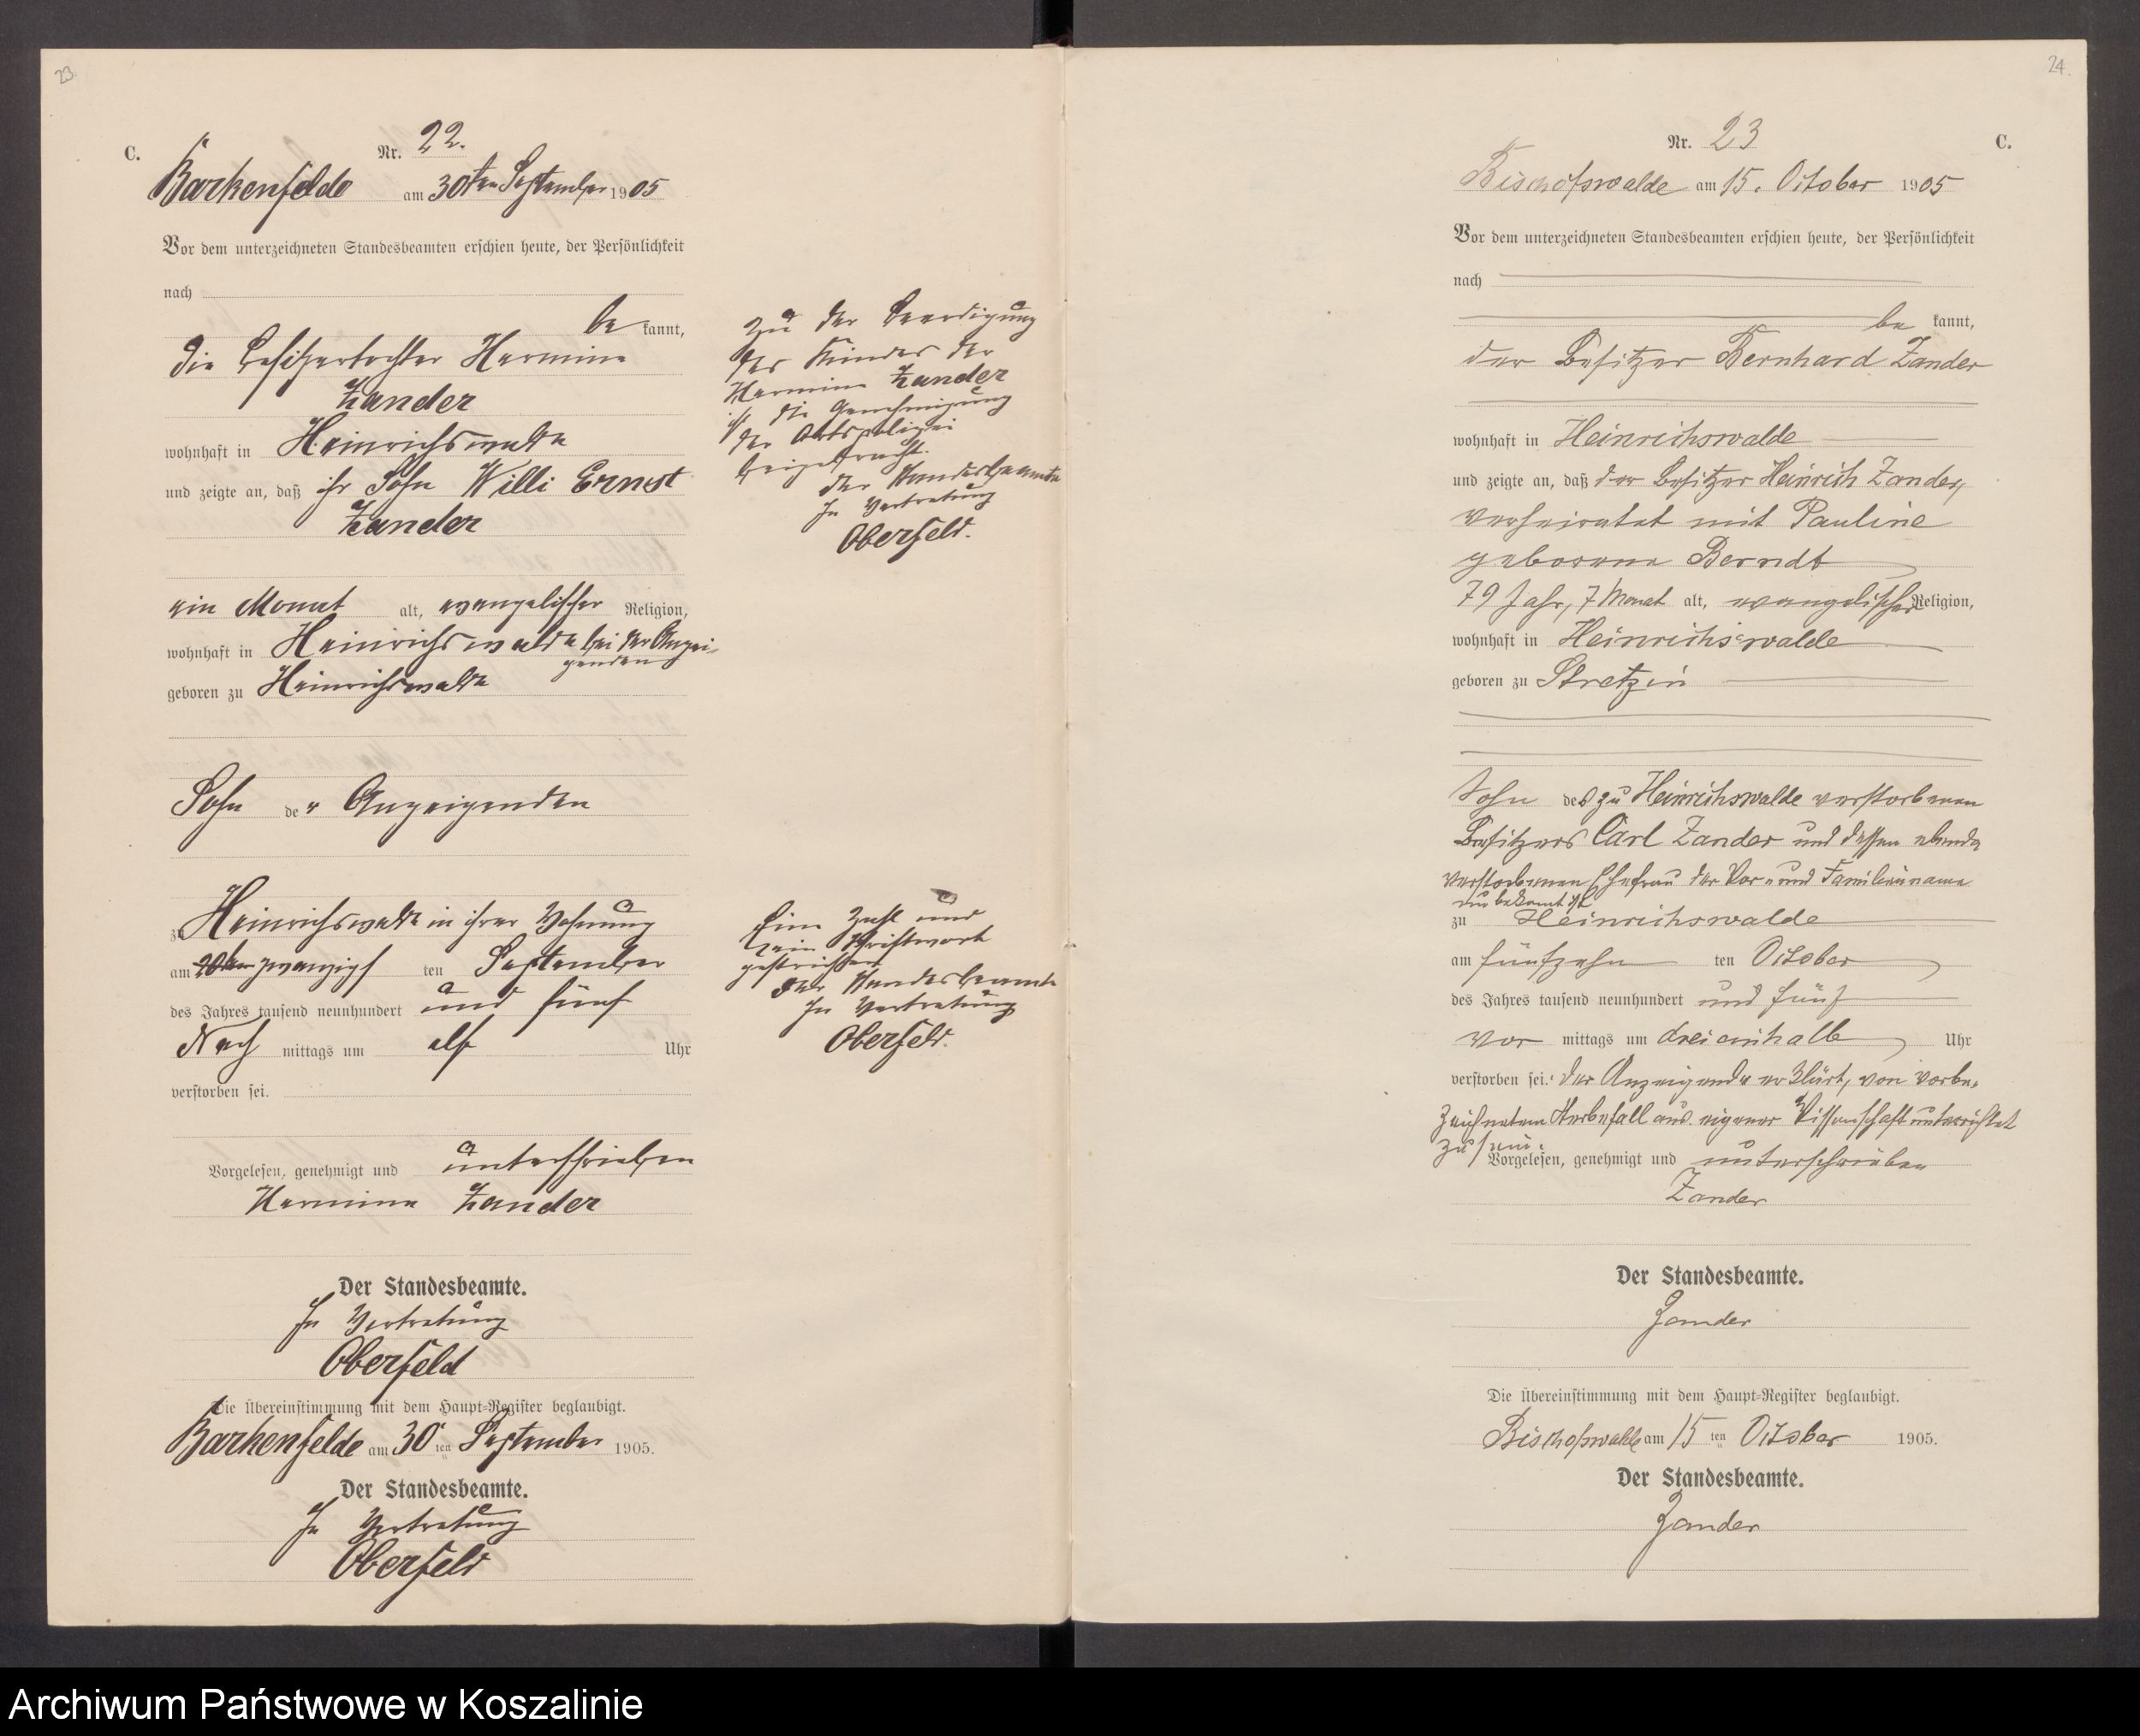 23.
C.
Nr. 22.
Barkenfelde am 30ten September 1905
Vor dem unterzeichneten Standesbeamten erschien heute, der Persönlichkeit
nach
be kannt,
die Besitzertochter Hermine
Zander
wohnhaft in Heinrichswalde
und zeigte an, daß ihr Sohn Willi Ernst
Zander
ein Monat alt, evangelischer Religion,
wohnhaft in Heinrichswalde bei der Anzei-
genden
geboren zu Heinrichswalde
Sohn der Anzeigenden
zu Heinrichswalde in ihrer Wohnung
am 20ten zwanzigsten September
des Jahres tausend neunhundert und fünf
Nach mittags um elf Uhr
verstorben sei.
Vorgelesen, genehmigt und unterschrieben
Hermine Zander
Der Standesbeamte.
In Vertretung
Oberfeld
Die Übereinstimmung mit dem Haupt-Register beglaubigt.
Barkenfelde am 30ten September 1905.
Der Standesbeamte.
In Vertretung
Oberfeld
Zu der Beerdigung
des Kindes der
Hermine Zander
ist die Genehmigung
der Ortspolizei
beigebracht.
Der Standesbeamte
In Vertretung
Oberfeld.
Eine Zahl und
kein Schriftwort
gestrichen
Der Standesbeamte
In Vertretung
Oberfeld.
24.
Nr. 23
C.
Bischofswalde am 15. October 1905
Vor dem unterzeichneten Standesbeamten erschien heute, der Persönlichkeit
nach
be kannt,
der Besitzer Bernhard Zander
wohnhaft in Heinrichswalde
und zeigte an, daß der Besitzer Heinrich Zander,
verheiratet mit Pauline
geborene Berndt
79 Jahr, 7 Monat alt, evangelischer Religion,
wohnhaft in Heinrichswalde
geboren zu Stretzin
Sohn des zu Heinrichswalde verstorbenen
Besitzers Carl Zander und dessen ebenda
verstorbenen Ehefrau der Vor- und Familienname
unbekannt ist
zu Heinrichswalde
am fünfzehn ten October
des Jahres tausend neunhundert und fünf
vor mittags um dreieinhalb Uhr
verstorben sei. Der Anzeigende erklärt, von vorbe-
zeichnetem Sterbefall aus eigener Wissenschaft unterrichtet
zu sein.
Vorgelesen, genehmigt und unterschrieben
Zander
Der Standesbeamte.
Zander
Die Übereinstimmung mit dem Haupt-Register beglaubigt.
Bischofswalde am 15 ten October 1905.
Der Standesbeamte.
Zander
Archiwum Państwowe w Koszalinie